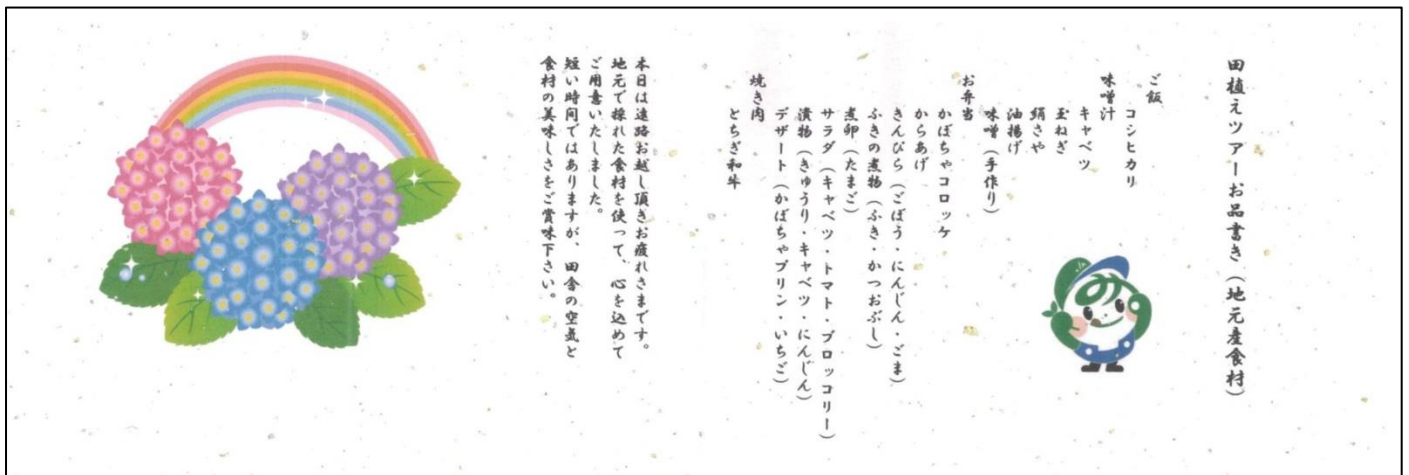 田植えツアーお品書き（地元産食材）
ご飯
コシヒカリ
味噌汁
キャベツ
玉ねぎ
絹さや
油揚げ
味噌（手作り）
お弁当
かぼちゃコロッケ
からあげ
きんぴら（ごぼう・にんじん・ごま）
ふきの煮物（ふき・かつおぶし）
煮卵（たまご）
サラダ（キャベツ・トマト・ブロッコリー）
漬物（きゅうり・キャベツ・にんじん）
デザート（かぼちゃプリン・いちご）
焼き肉
とちぎ和牛
本日は遠路お越し頂きお疲れさまです。
地元で採れた食材を使って、心を込めて
ご用意いたしました。
短い時間ではありますが、田舎の空気と
食材の美味しさをご賞味下さい。